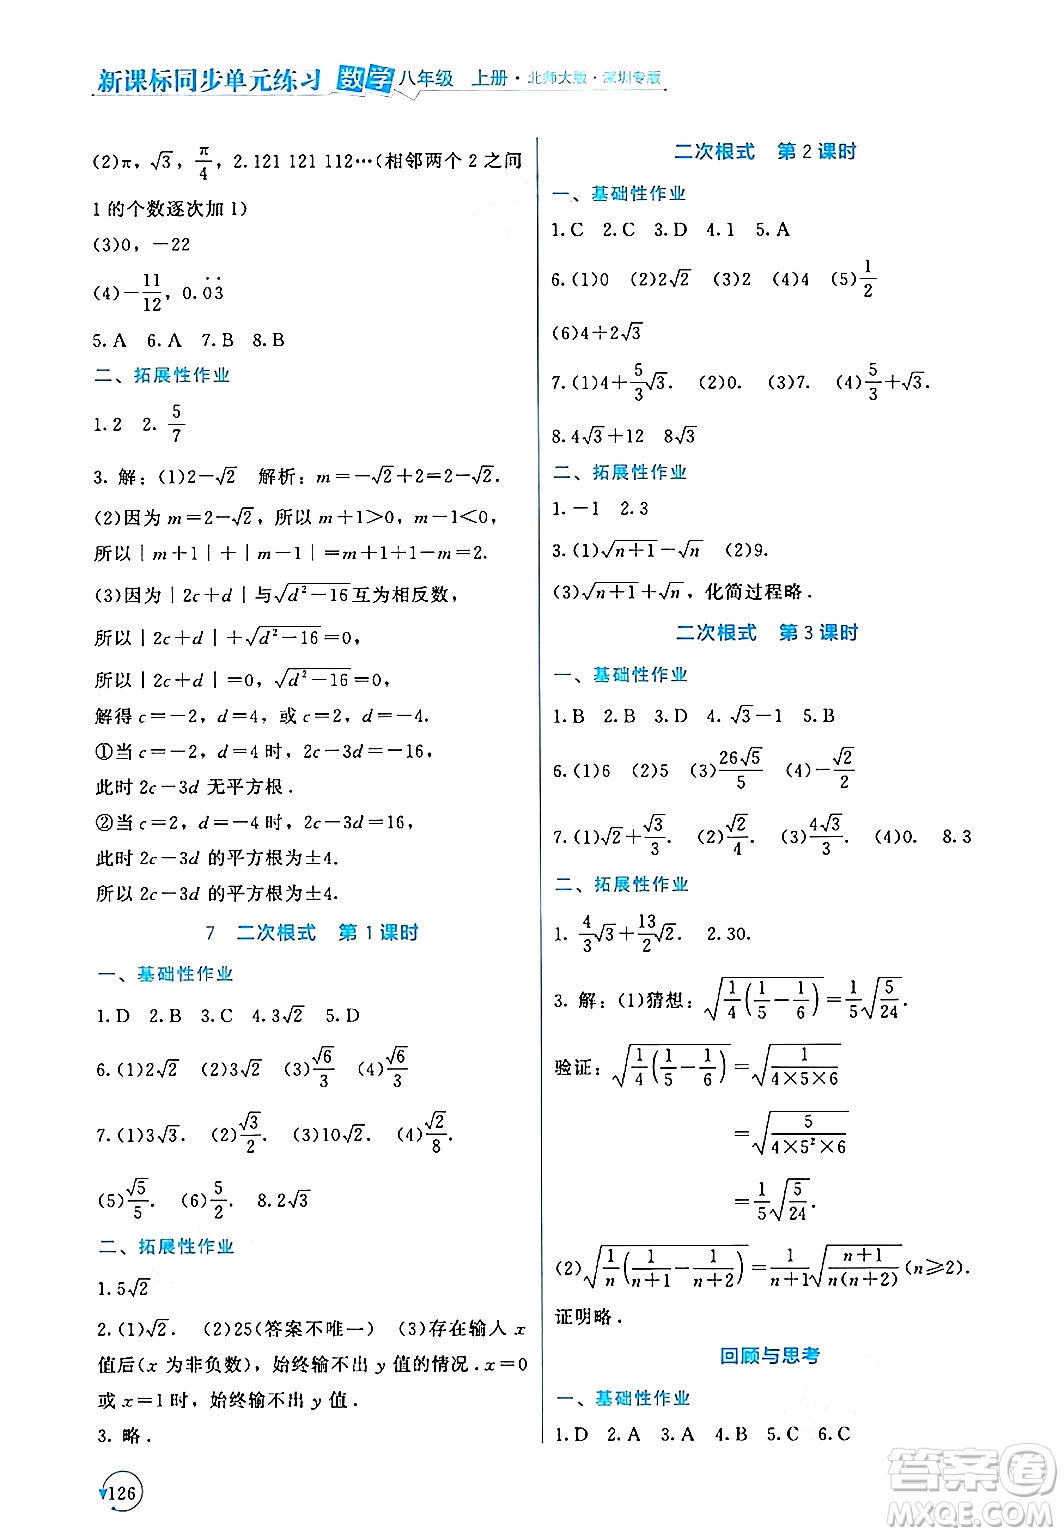 新课标同步单元练习 数学 八年级 上册·北师大版·深圳专版
(2)π，√3，π/4，2.121 121 112…(相邻两个 2 之间
1 的个数逐次加 1)
(3)0，－22
(4)－11/12，0.0̇3̇
5. A 6. A 7. B 8. B
二、拓展性作业
1. 2 2. 5/7
3. 解：(1)2－√2 解析：m＝－√2＋2＝2－√2.
(2)因为 m＝2－√2，所以 m＋1＞0，m－1＜0，
所以｜m＋1｜＋｜m－1｜＝m＋1－m＋1＝2.
(3)因为｜2c＋d｜与√(d²－16)互为相反数，
所以｜2c＋d｜＋√(d²－16)＝0，
所以｜2c＋d｜＝0，√(d²－16)＝0，
解得 c＝－2，d＝4，或 c＝2，d＝－4.
①当 c＝－2，d＝4 时，2c－3d＝－16，
此时 2c－3d 无平方根.
②当 c＝2，d＝－4 时，2c－3d＝16，
此时 2c－3d 的平方根为±4.
所以 2c－3d 的平方根为±4.
7 二次根式 第 1 课时
一、基础性作业
1. D 2. B 3. C 4. 3√2 5. D
6. (1)2√2 (2)3√2 (3)√6/3 (4)√6/3
7. (1)3√3. (2)√3/2. (3)10√2. (4)√2/8.
(5)√5/5. (6)5/2. 8. 2√3
二、拓展性作业
1. 5√2
2. (1)√2. (2)25(答案不唯一) (3)存在输入 x
值后(x 为非负数)，始终输不出 y 值的情况. x＝0
或 x＝1 时，始终输不出 y 值.
3. 略.
126
二次根式 第 2 课时
一、基础性作业
1. C 2. C 3. D 4. 1 5. A
6. (1)0 (2)2√2 (3)2 (4)4 (5)1/2
(6)4＋2√3
7. (1)4＋5/3√3. (2)0. (3)7. (4)5/3＋√3.
8. 4√3＋12 8√3
二、拓展性作业
1. －1 2. 3
3. (1)√(n＋1)－√n (2)9.
(3)√(n＋1)＋√n，化简过程略.
二次根式 第 3 课时
一、基础性作业
1. B 2. B 3. D 4. √3－1 5. B
6. (1)6 (2)5 (3)26√5/5 (4)－√2/2
7. (1)√2＋√3/3. (2)√2/4. (3)4√3/3. (4)0. 8. 3
二、拓展性作业
1. 4/3√3＋13/2√2. 2. 30.
3. 解：(1)猜想：√(1/4(1/5－1/6))＝1/5√(5/24).
验证：√(1/4(1/5－1/6))＝√(1/(4×5×6))
＝√(5/(4×5²×6))
＝1/5√(5/24).
(2)√(1/n(1/(n＋1)－1/(n＋2)))＝1/(n＋1)√((n＋1)/(n(n＋2)))(n≥2).
证明略.
回顾与思考
一、基础性作业
1. D 2. A 3. A 4. B 5. C 6. C
答案圈
MXQE.COM